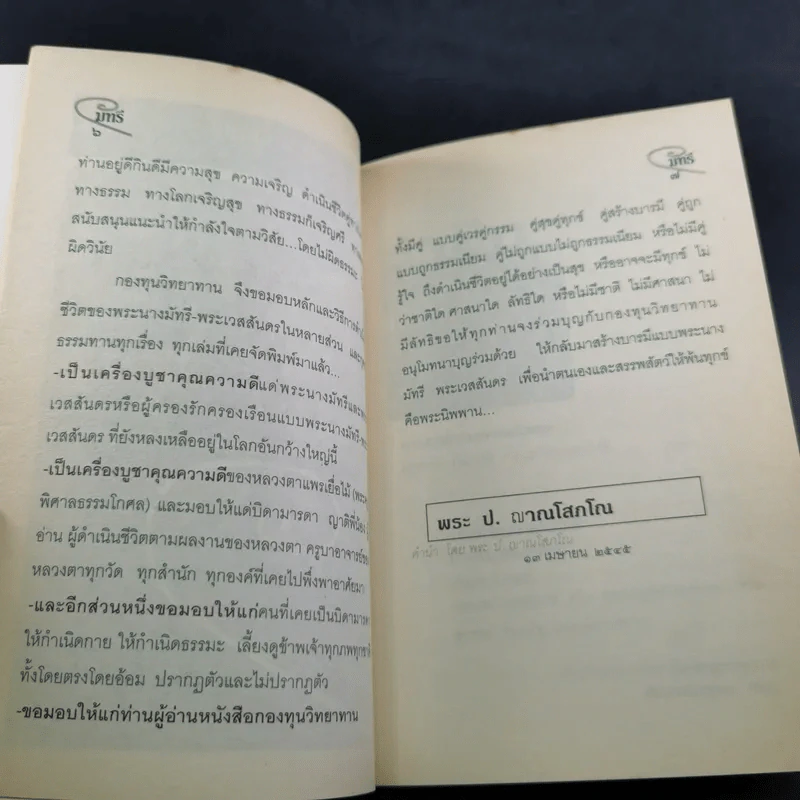 มัทรี
๖
ท่านอยู่ดีกินดีมีความสุข ความเจริญ ดำเนินชีวิต
ทางธรรม ทางโลกเจริญสุข ทางธรรมก็เจริญศรี
สนับสนุนแนะนำให้กำลังใจตามวิสัย...โดยไม่ผิดธรรมะ
ผิดวินัย
กองทุนวิทยาทาน จึงขอมอบหลักและวิธีการ
ชีวิตของพระนางมัทรี-พระเวสสันดรในหลายส่วน และ
ธรรมทานทุกเรื่อง ทุกเล่มที่เคยจัดพิมพ์มาแล้ว...
-เป็นเครื่องบูชาคุณความดีแด่พระนางมัทรีและ
เวสสันดรหรือผู้ครองรักครองเรือนแบบพระนางมัทรี-
เวสสันดร ที่ยังหลงเหลืออยู่ในโลกอันกว้างใหญ่นี้
-เป็นเครื่องบูชาคุณความดีของหลวงตาแพรเยื่อไม้
พิศาลธรรมโกศล) และมอบให้แด่บิดามารดา ญาติพี่น้อง
อ่าน ผู้ดำเนินชีวิตตามผลงานของหลวงตา ครูบาอาจารย์
หลวงตาทุกวัด ทุกสำนัก ทุกองค์ที่เคยไปพึ่งพาอาศัยมา
-และอีกส่วนหนึ่งขอมอบให้แก่คนที่เคยเป็นบิดามารดา
ให้กำเนิดกาย ให้กำเนิดธรรมะ เลี้ยงดูข้าพเจ้าทุกภพทุกชาติ
ทั้งโดยตรงโดยอ้อม ปรากฏตัวและไม่ปรากฏตัว
-ขอมอบให้แก่ท่านผู้อ่านหนังสือกองทุนวิทยาทาน
มัทรี
๗
ทั้งมีคู่ แบบคู่เวรคู่กรรม คู่สุขคู่ทุกข์ คู่สร้างบารมี คู่ถูก
แบบถูกธรรมเนียม คู่ไม่ถูกแบบไม่ถูกธรรมเนียม หรือไม่มีคู่
รู้ใจ ถึงดำเนินชีวิตอยู่ได้อย่างเป็นสุข หรืออาจจะมีทุกข์ ไม่
ว่าชาติใด ศาสนาใด ลัทธิใด หรือไม่มีชาติ ไม่มีศาสนา ไม่
มีลัทธิขอให้ทุกท่านจงร่วมบุญกับกองทุนวิทยาทาน
อนุโมทนาบุญร่วมด้วย ให้กลับมาสร้างบารมีแบบพระนาง
มัทรี พระเวสสันดร เพื่อนำตนเองและสรรพสัตว์ให้พ้นทุกข์
คือพระนิพพาน...
พระ ป. ญาณโสภโณ
คำนำ โดย พระ ป. ญาณโสภโณ
๑๓ เมษายน ๒๕๔๕